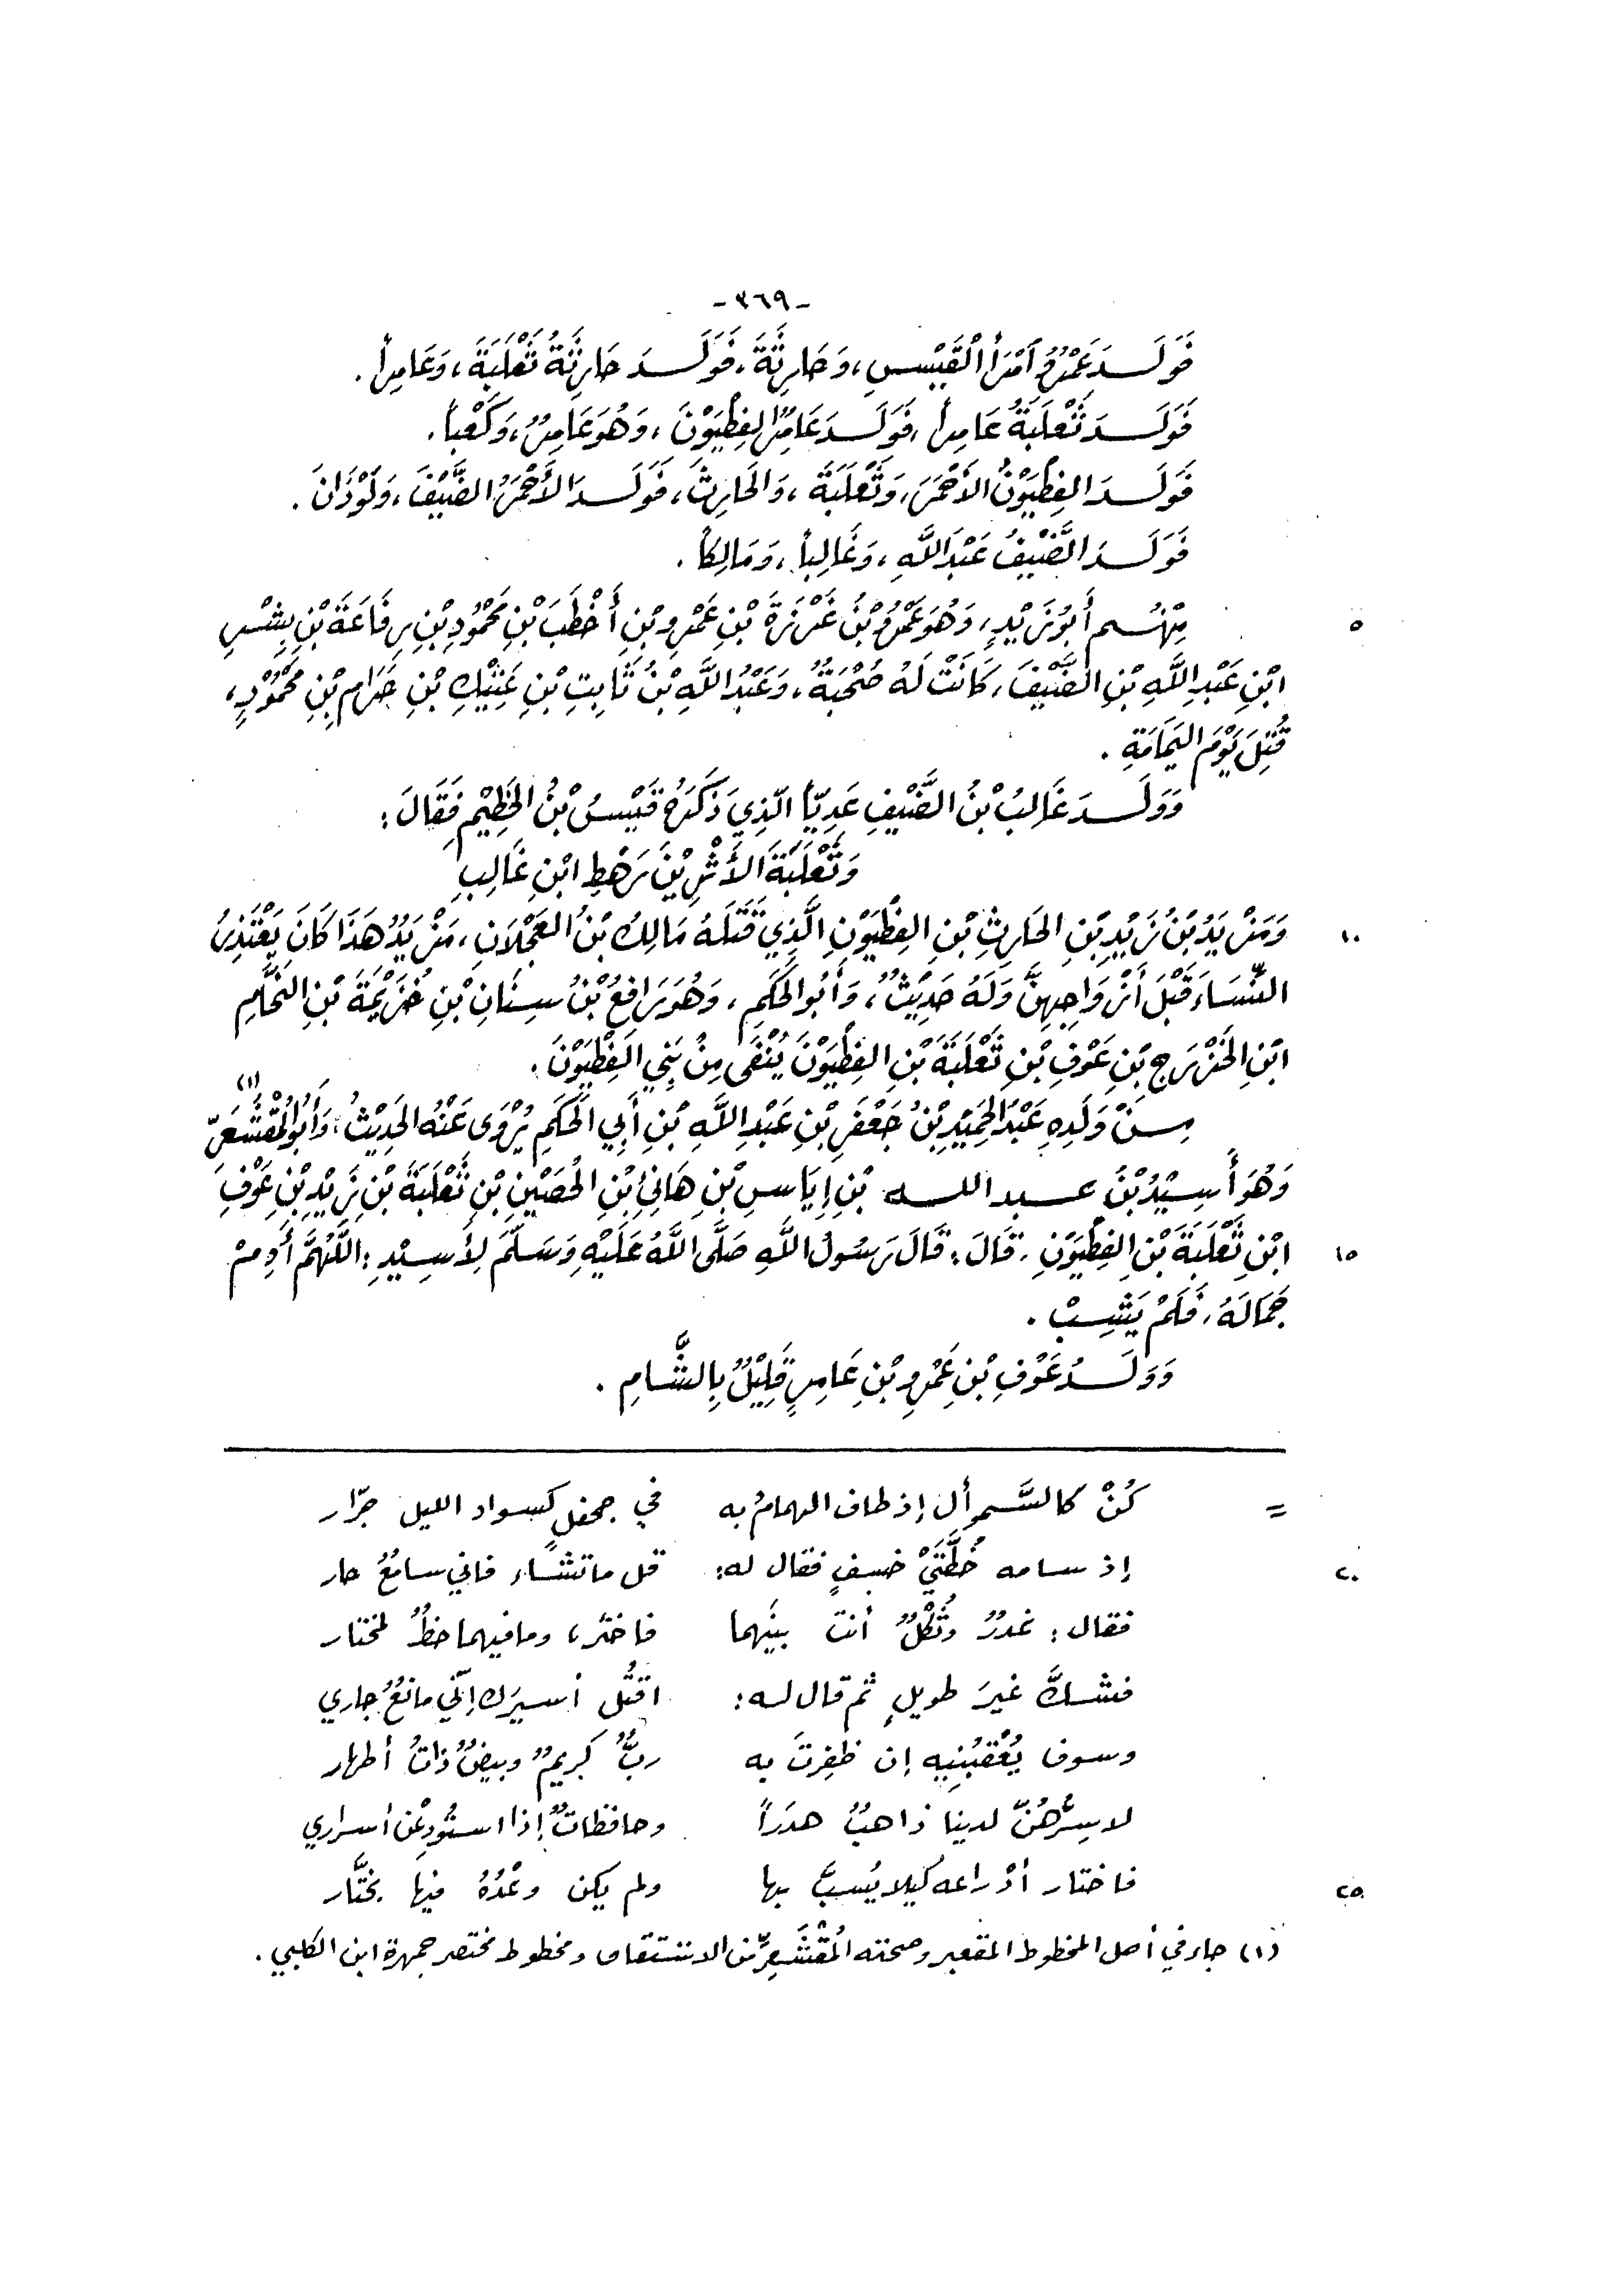 -٣٦٩-
فَوَلَدَ عَمْرٌو آمْرَأَ القَيْسِ، وَحَارِثَةَ، فَوَلَدَ حَارِثَةُ ثَعْلَبَةَ، وَعَامِراً.
فَوَلَدَ ثَعْلَبَةُ عَامِراً، فَوَلَدَ عَامِرٌ الفِطْيَوْنَ، وَهُوَ عَامِرٌ، وَكَعْباً.
فَوَلَدَ الفِطْيَوْنُ الأَحْمَرَ، وَثَعْلَبَةَ، وَالحَارِثَ، فَوَلَدَ الأَحْمَرُ الضَّيْفَ، وَلَوْذَانَ.
فَوَلَدَ الضَّيْفُ عَبْدَ اللَّهِ، وَغَالِباً، وَمَالِكاً.
٥ مِنْهُم أَبُو زَيْدٍ، وَهُوَ عَمْرُو بْنُ عَزْرَةَ بْنِ عَمْرِو بْنِ أَخْطَبَ بْنِ مَحْمُودِ بْنِ رِفَاعَةَ بْنِ بِشْسِ
ابْنِ عَبْدِ اللَّهِ بْنِ الضَّيْفَ، كَانَتْ لَهُ صُحْبَةٌ، وَعَبْدُ اللَّهِ بْنُ ثَابِتِ بْنِ عَتِيْكِ بْنِ حَرَامِ بْنِ مَحْمُوْدٍ،
قُتِلَ يَوْمَ اليَمَامَةِ.
وَوَلَدَ غَالِبُ بْنُ الضَّيْفِ عَدِيّاً الَّذِي ذَكَرَهُ قَيْسُ بْنُ الخَطِيْمِ فَقَالَ:
وَثَعْلَبَةَ الأَثْرِيْنَ رَهْطِ ابْنِ غَالِبِ
١٠ وَمَزْيَدُ بْنُ زَيْدِ بْنِ الحَارِثِ بْنِ الفِطْيَوْنِ الَّذِي قَتَلَهُ مَالِكُ بْنُ العَجْلَانِ، مَزْيَدُ هَذَا كَانَ يَعْتَذِرُ
النِّسَاءَ قَبْلَ أَزْوَاجِهِنَّ وَلَهُ حَدِيْثٌ، وَأَبُو الحَكَمِ، وَهُوَ رَافِعُ بْنُ سِنَانِ بْنِ خُزَيْمَةَ بْنِ النَّحَّامِ
ابْنِ الخَزْرَجِ بْنِ عَوْفِ بْنِ ثَعْلَبَةَ بْنِ الفِطْيَوْنَ يُنْفَى مِنْ بَنِي الفِطْيَوْنَ.
مِنْ وَلَدِهِ عَبْدُ الحَمِيْدِ بْنُ جَعْفَرِ بْنِ عَبْدِ اللَّهِ بْنِ أَبِي الحَكَمِ يُرْوَى عَنْهُ الحَدِيْثُ، وَأَبُو المُقْشَعَرّ (١)
وَهُوَ أَسِيْدُ بْنُ عبد الله بْنِ إِيَاسِ بْنِ هَانِئِ بْنِ الحُصَيْنِ بْنِ ثَعْلَبَةَ بْنِ زَيْدِ بْنِ عَوْفِ
١٥ ابْنِ ثَعْلَبَةَ بْنِ الفِطْيَوْنِ. قَالَ: قَالَ رَسُولُ اللَّهِ صَلَّى اللَّهُ عَلَيْهِ وَسَلَّمَ لِأَسِيْدٍ: اللَّهُمَّ أَدِمْ
جَمَالَهُ، فَلَمْ يَشِبْ.
وَوَلَدُ عَوْفِ بْنِ عَمْرِو بْنِ عَامِرٍ قَلِيْلٌ بِالشَّامِ.
= كُنْ كالسَّموأل إذ طاف الهمامُ به في جحفلٍ كسواد الليل جرّار
٢٠ إذ سامه خُطَّتَيْ خسفٍ فقال له: قل ما تشاء فاني سامعٌ حار
فقال: غدرٌ وثُكْلٌ أنتَ بينَهما فاختَر، وما فيهما حظٌ لمختار
فشكَّ غيرَ طويلٍ ثم قال له: اقتُل أسيرَك إنّي مانعٌ جاري
وسوف يُعْقِبُنِيه إن ظفِرتَ به ربٌّ كريمٌ وبيضٌ ذاتُ أطهار
لا سِرُّهُنّ لدينا ذاهبٌ هدَراً وحافظاتٌ إذا استُودِعْن أسراري
٢٥ فاختار أدْراعه كيلا يُسبَّ بها ولم يكن وعْدُهُ فيها بختَّار
(١) جاء في أصل المخطوط المقعبر وصحته المُقْشَعِرّ من الاشتقاق ومخطوط مختصر جمهرة ابن الكلبي.